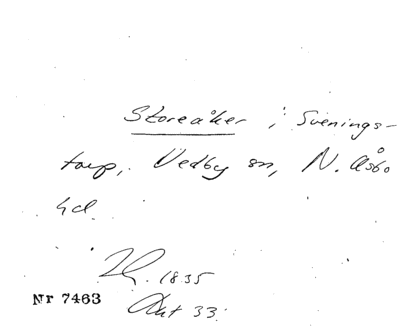 Storeåker i Svenings-
torp, Vedby sn, N. Åsbo
hd.
1835
Nr 7463
Akt 33: